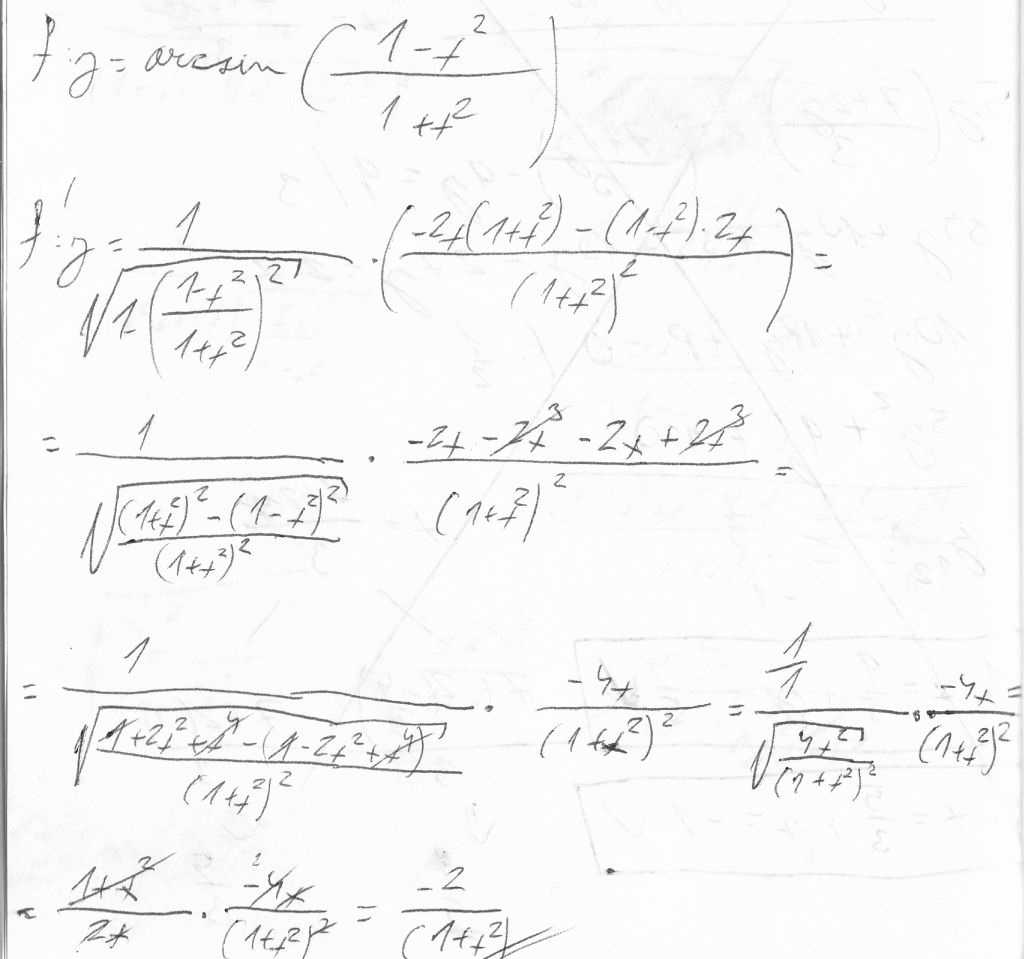 f: y = arcsin ( (1-x²) / (1+x²) )
f': y = 1 / √(1-((1-x²)/(1+x²))²) · ( (-2x(1+x²) - (1-x²)·2x) / (1+x²)² ) =
= 1 / √(((1+x²)² - (1-x²)²) / (1+x²)²) · (-2x - 2x³ - 2x + 2x³) / (1+x²)² =
= 1 / √((1+2x²+x⁴ - (1-2x²+x⁴)) / (1+x²)²) · -4x / (1+x²)² = (1/1) / √(4x² / (1+x²)²) · -4x / (1+x²)² =
= (1+x²) / 2x · -4x / (1+x²)² = -2 / (1+x²)